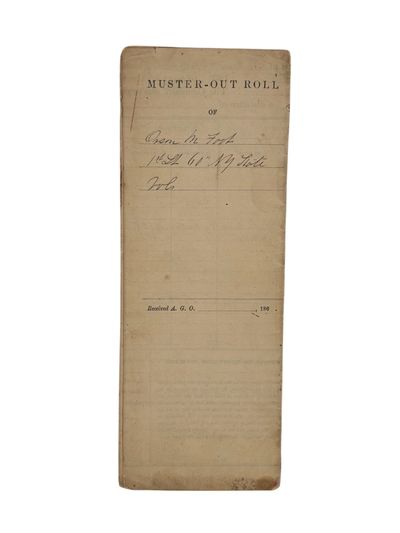 MUSTER-OUT ROLL
OF
Orson M Foot
1st Lt 60" NY State
Vols
Received A. G. O. , 186